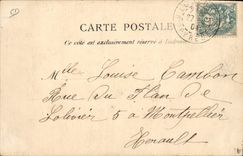 CARTE POSTALE
Ce côté est exclusivement réservé à l'adresse
Mlle Louise Cambon
Rue du Plan de
Lolivier 5 à Montpellier
Herault